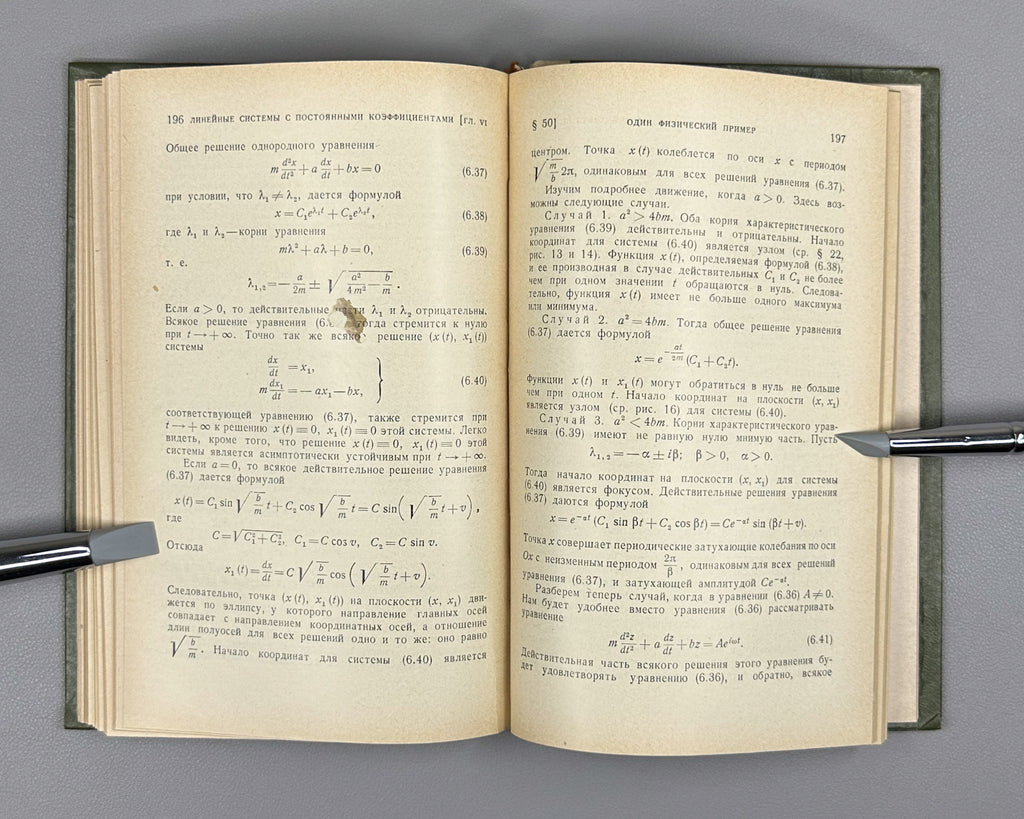 196 ЛИНЕЙНЫЕ СИСТЕМЫ С ПОСТОЯННЫМИ КОЭФФИЦИЕНТАМИ [ГЛ. VI
Общее решение однородного уравнения
m d²x/dt² + a dx/dt + bx = 0 (6.37)
при условии, что λ₁ ≠ λ₂, дается формулой
x = C₁e^{λ₁t} + C₂e^{λ₂t}, (6.38)
где λ₁ и λ₂ — корни уравнения
mλ² + aλ + b = 0, (6.39)
т. е.
λ₁,₂ = − a/2m ± √(a²/4m² − b/m).
Если a > 0, то действительные части λ₁ и λ₂ отрицательны.
Всякое решение уравнения (6. тогда стремится к нулю
при t → + ∞. Точно так же всяко решение (x (t), x₁(t))
системы
dx/dt = x₁,
m dx₁/dt = − ax₁ − bx, } (6.40)
соответствующей уравнению (6.37), также стремится при
t → + ∞ к решению x (t) ≡ 0, x₁ (t) ≡ 0 этой системы. Легко
видеть, кроме того, что решение x (t) ≡ 0, x₁ (t) ≡ 0 этой
системы является асимптотически устойчивым при t → + ∞.
Если a = 0, то всякое действительное решение уравнения
(6.37) дается формулой
x (t) = C₁ sin √(b/m) t + C₂ cos √(b/m) t = C sin (√(b/m) t + v),
где
C = √(C₁² + C₂²), C₁ = C cos v, C₂ = C sin v.
Отсюда
x₁ (t) = dx/dt = C √(b/m) cos (√(b/m) t + v).
Следовательно, точка (x (t), x₁ (t)) на плоскости (x, x₁) дви-
жется по эллипсу, у которого направление главных осей
совпадает с направлением координатных осей, а отношение
длин полуосей для всех решений одно и то же: оно равно
√(b/m). Начало координат для системы (6.40) является
§ 50] ОДИН ФИЗИЧЕСКИЙ ПРИМЕР 197
центром. Точка x (t) колеблется по оси x с периодом
√(m/b) 2π, одинаковым для всех решений уравнения (6.37).
Изучим подробнее движение, когда a > 0. Здесь воз-
можны следующие случаи.
Случай 1. a² > 4bm. Оба корня характеристического
уравнения (6.39) действительны и отрицательны. Начало
координат для системы (6.40) является узлом (ср. § 22,
рис. 13 и 14). Функция x (t), определяемая формулой (6.38),
и ее производная в случае действительных C₁ и C₂ не более
чем при одном значении t обращаются в нуль. Следова-
тельно, функция x (t) имеет не больше одного максимума
или минимума.
Случай 2. a² = 4bm. Тогда общее решение уравнения
(6.37) дается формулой
x = e^{−at/2m} (C₁ + C₂t).
Функции x (t) и x₁ (t) могут обратиться в нуль не больше
чем при одном t. Начало координат на плоскости (x, x₁)
является узлом (ср. рис. 16) для системы (6.40).
Случай 3. a² < 4bm. Корни характеристического урав-
нения (6.39) имеют не равную нулю мнимую часть. Пусть
λ₁,₂ = − α ± iβ; β > 0, α > 0.
Тогда начало координат на плоскости (x, x₁) для системы
(6.40) является фокусом. Действительные решения уравнения
(6.37) даются формулой
x = e^{−αt} (C₁ sin βt + C₂ cos βt) = Ce^{−αt} sin (βt + v).
Точка x совершает периодические затухающие колебания по оси
Ox с неизменным периодом 2π/β, одинаковым для всех решений
уравнения (6.37), и затухающей амплитудой Ce^{−αt}.
Разберем теперь случай, когда в уравнении (6.36) A ≠ 0.
Нам будет удобнее вместо уравнения (6.36) рассматривать
уравнение
m d²z/dt² + a dz/dt + bz = Ae^{iωt}. (6.41)
Действительная часть всякого решения этого уравнения бу-
дет удовлетворять уравнению (6.36), и обратно, всякое